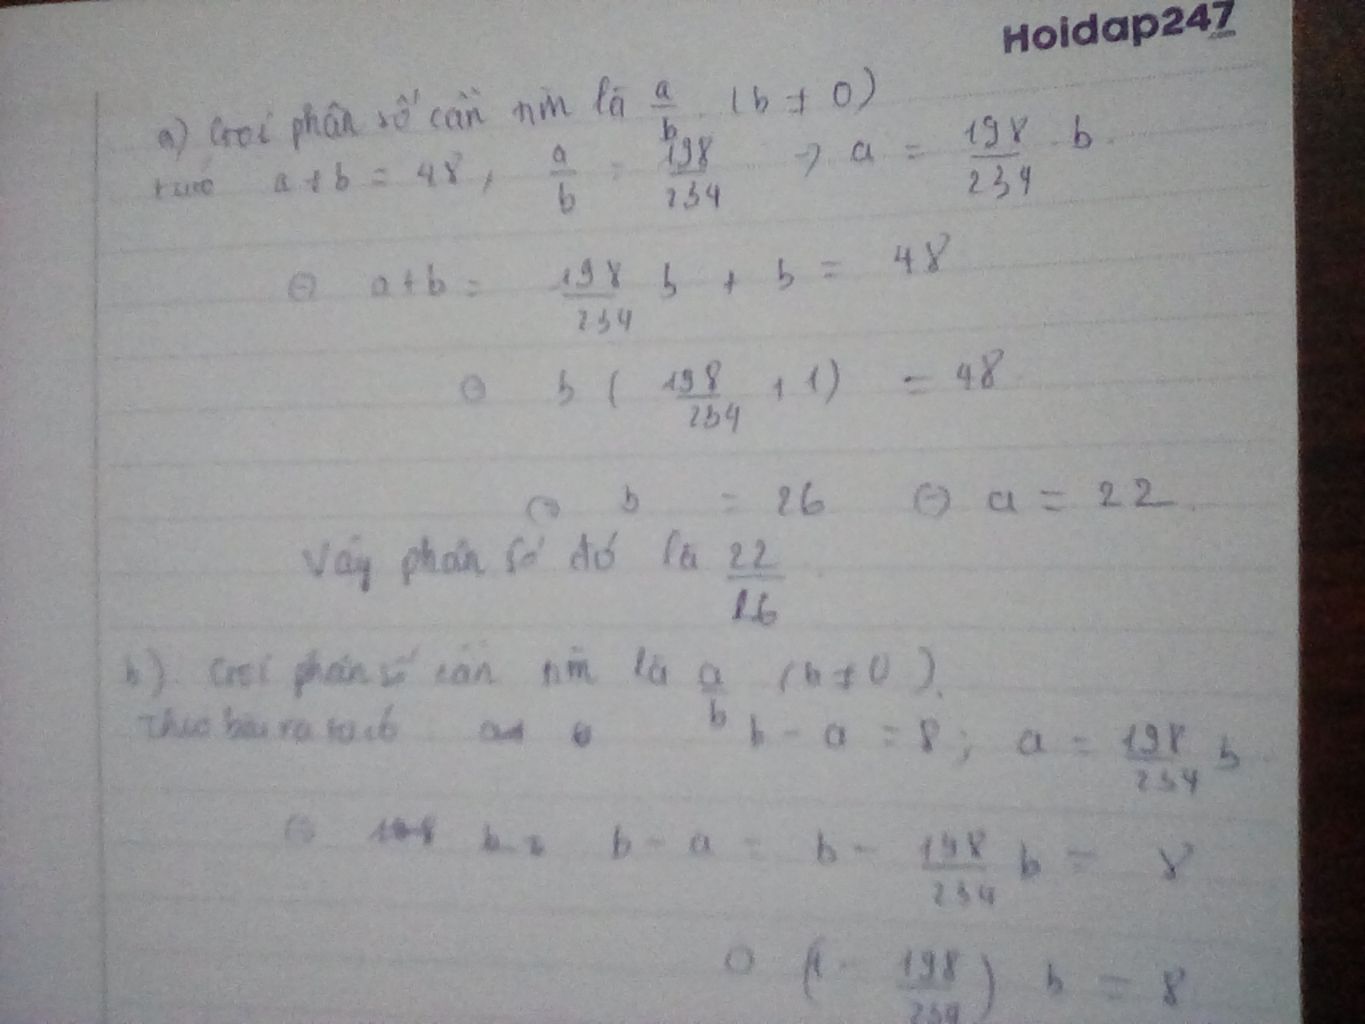 Hoidap247
.com
a) Gọi phân số cần tìm là a/b (b ≠ 0)
a + b = 48, a/b = 198/234 => a = 198/234 b.
⇔ a + b = 198/234 b + b = 48
⇔ b ( 198/234 + 1) = 48
⇔ b = 26 ⇔ a = 22.
Vậy phân số đó là 22/26
b) Gọi phân số cần tìm là a/b (b ≠ 0).
Theo bài ra ta có b - a = 8; a = 198/234 b
⇔ b - a = b - 198/234 b = 8
⇔ (1 - 198/234) b = 8